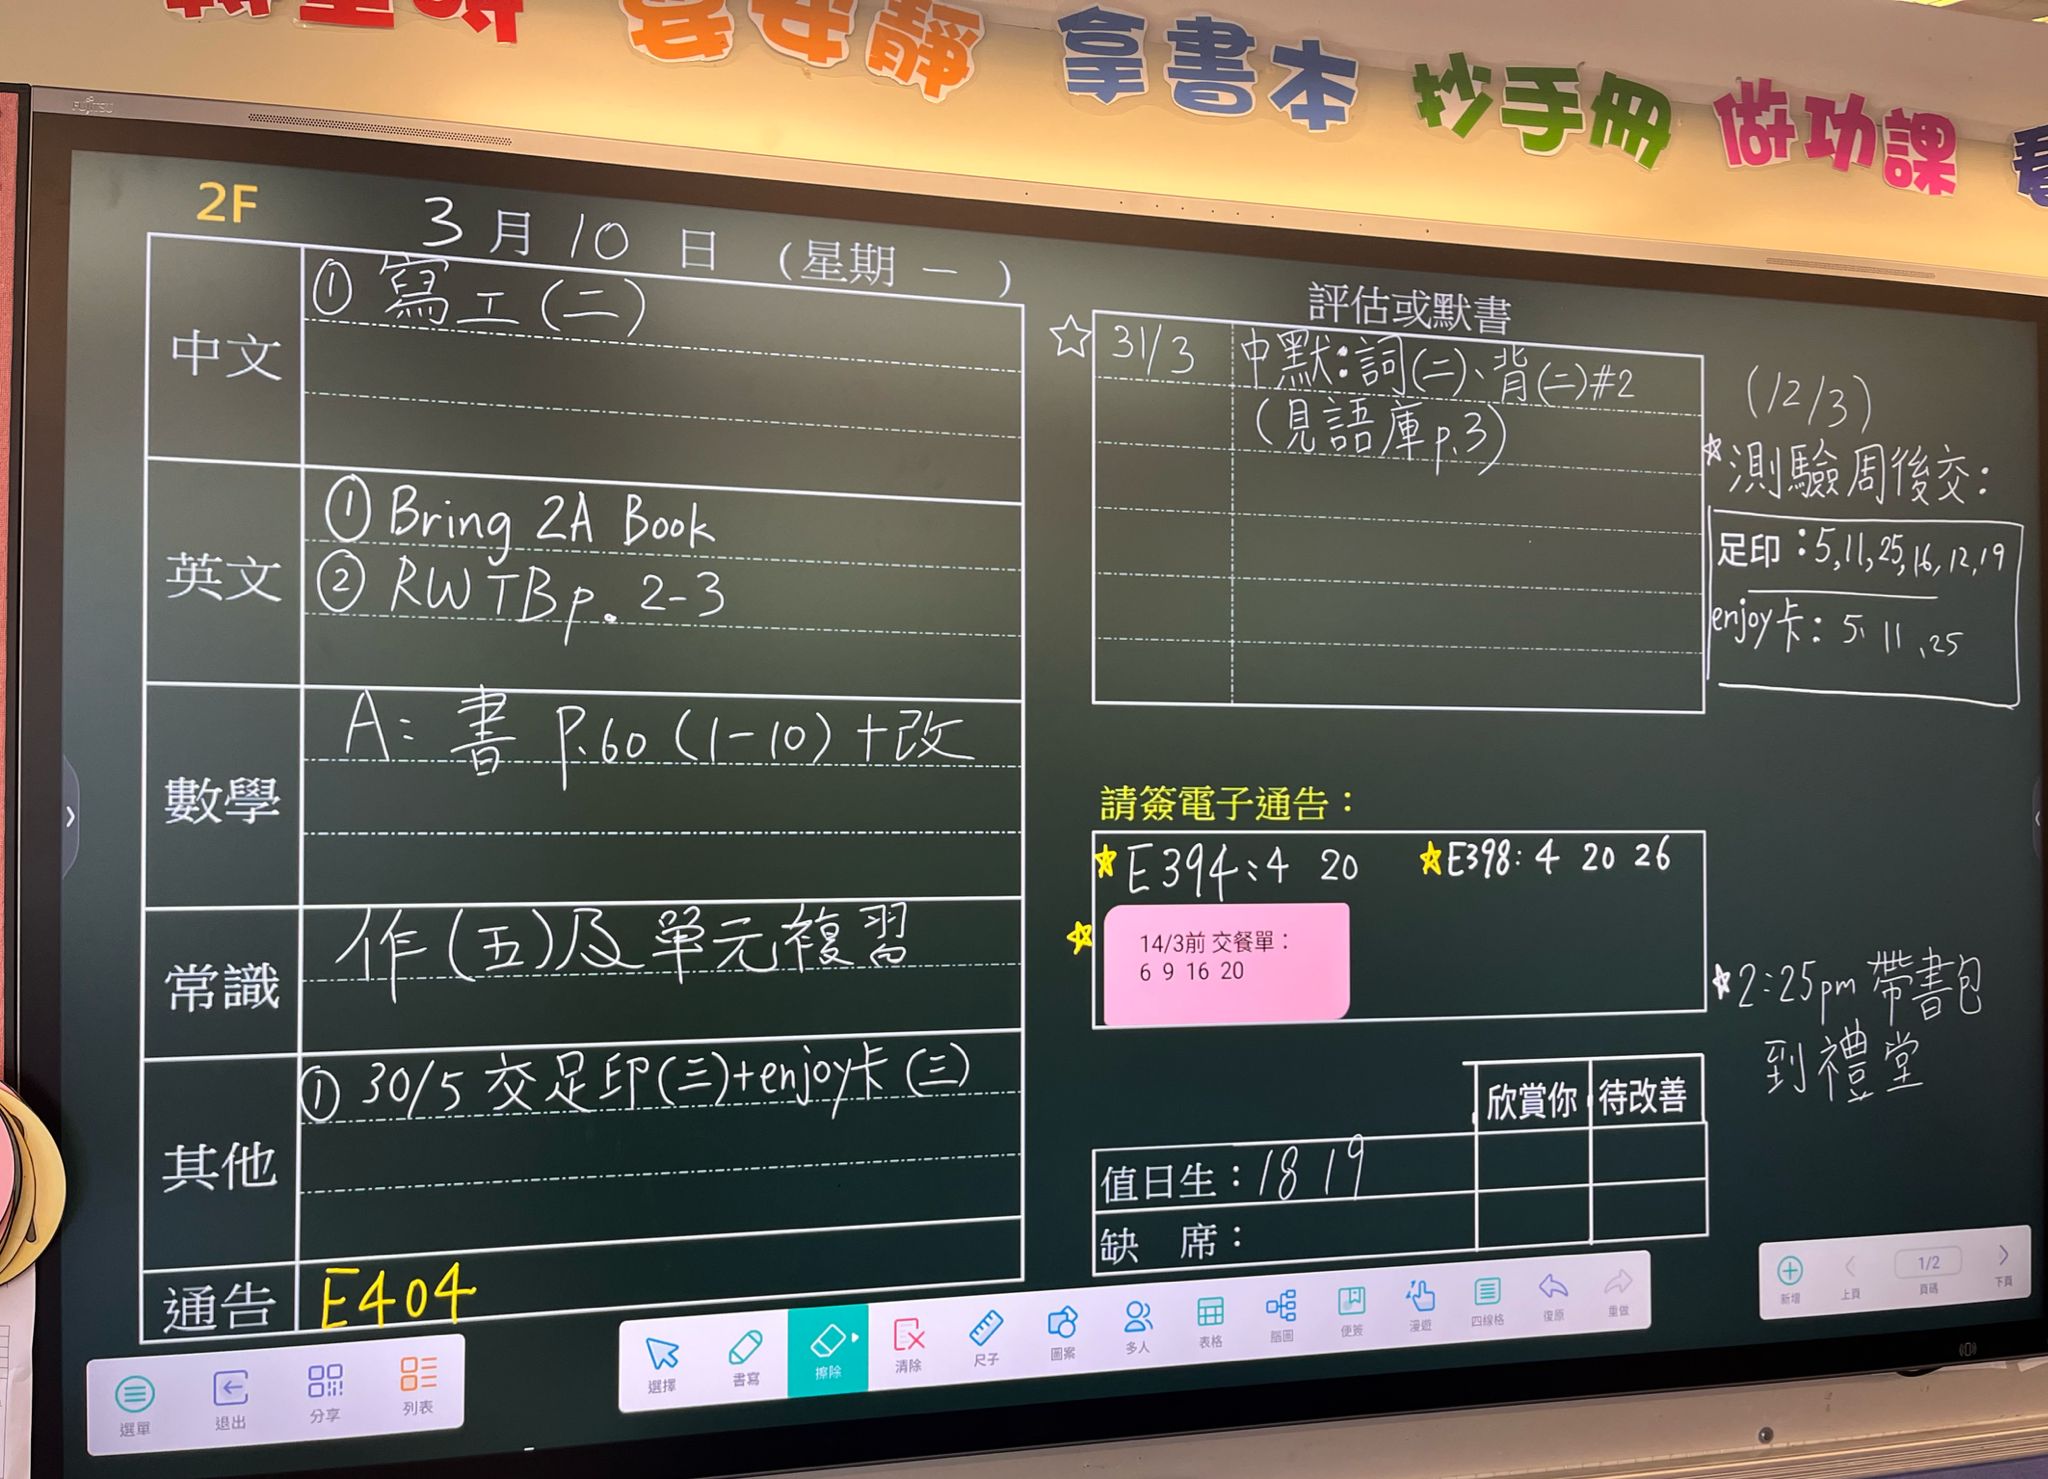 要安靜 拿書本 抄手冊 做功課
FUJITSU
2F
3月10日 (星期一)
中文
① 寫工(二)
英文
① Bring 2A Book
② RWTB p. 2-3
數學
A: 書 P.60 (1-10) +改
常識
作(五)及單元複習
其他
① 30/5 交足印(三)+enjoy卡(三)
通告
E404
評估或默書
☆ 31/3 中默:詞(二)、背(二)#2
(見語庫p.3)
(12/3)
☆測驗周後交:
足印:5,11,25,16,12,19
enjoy卡:5、11、25
請簽電子通告:
★E394:4 20 ★E398: 4 20 26
14/3前 交餐單:
6 9 16 20
☆2:25pm 帶書包
到禮堂
欣賞你 待改善
值日生:18 19
缺 席:
選單 退出 分享 列表
選擇 書寫 擦除 清除 尺子 圖案 多人 表格 腦圖 便簽 漫遊 四線格 復原 重做
1/2
新增 上頁 頁碼 下頁